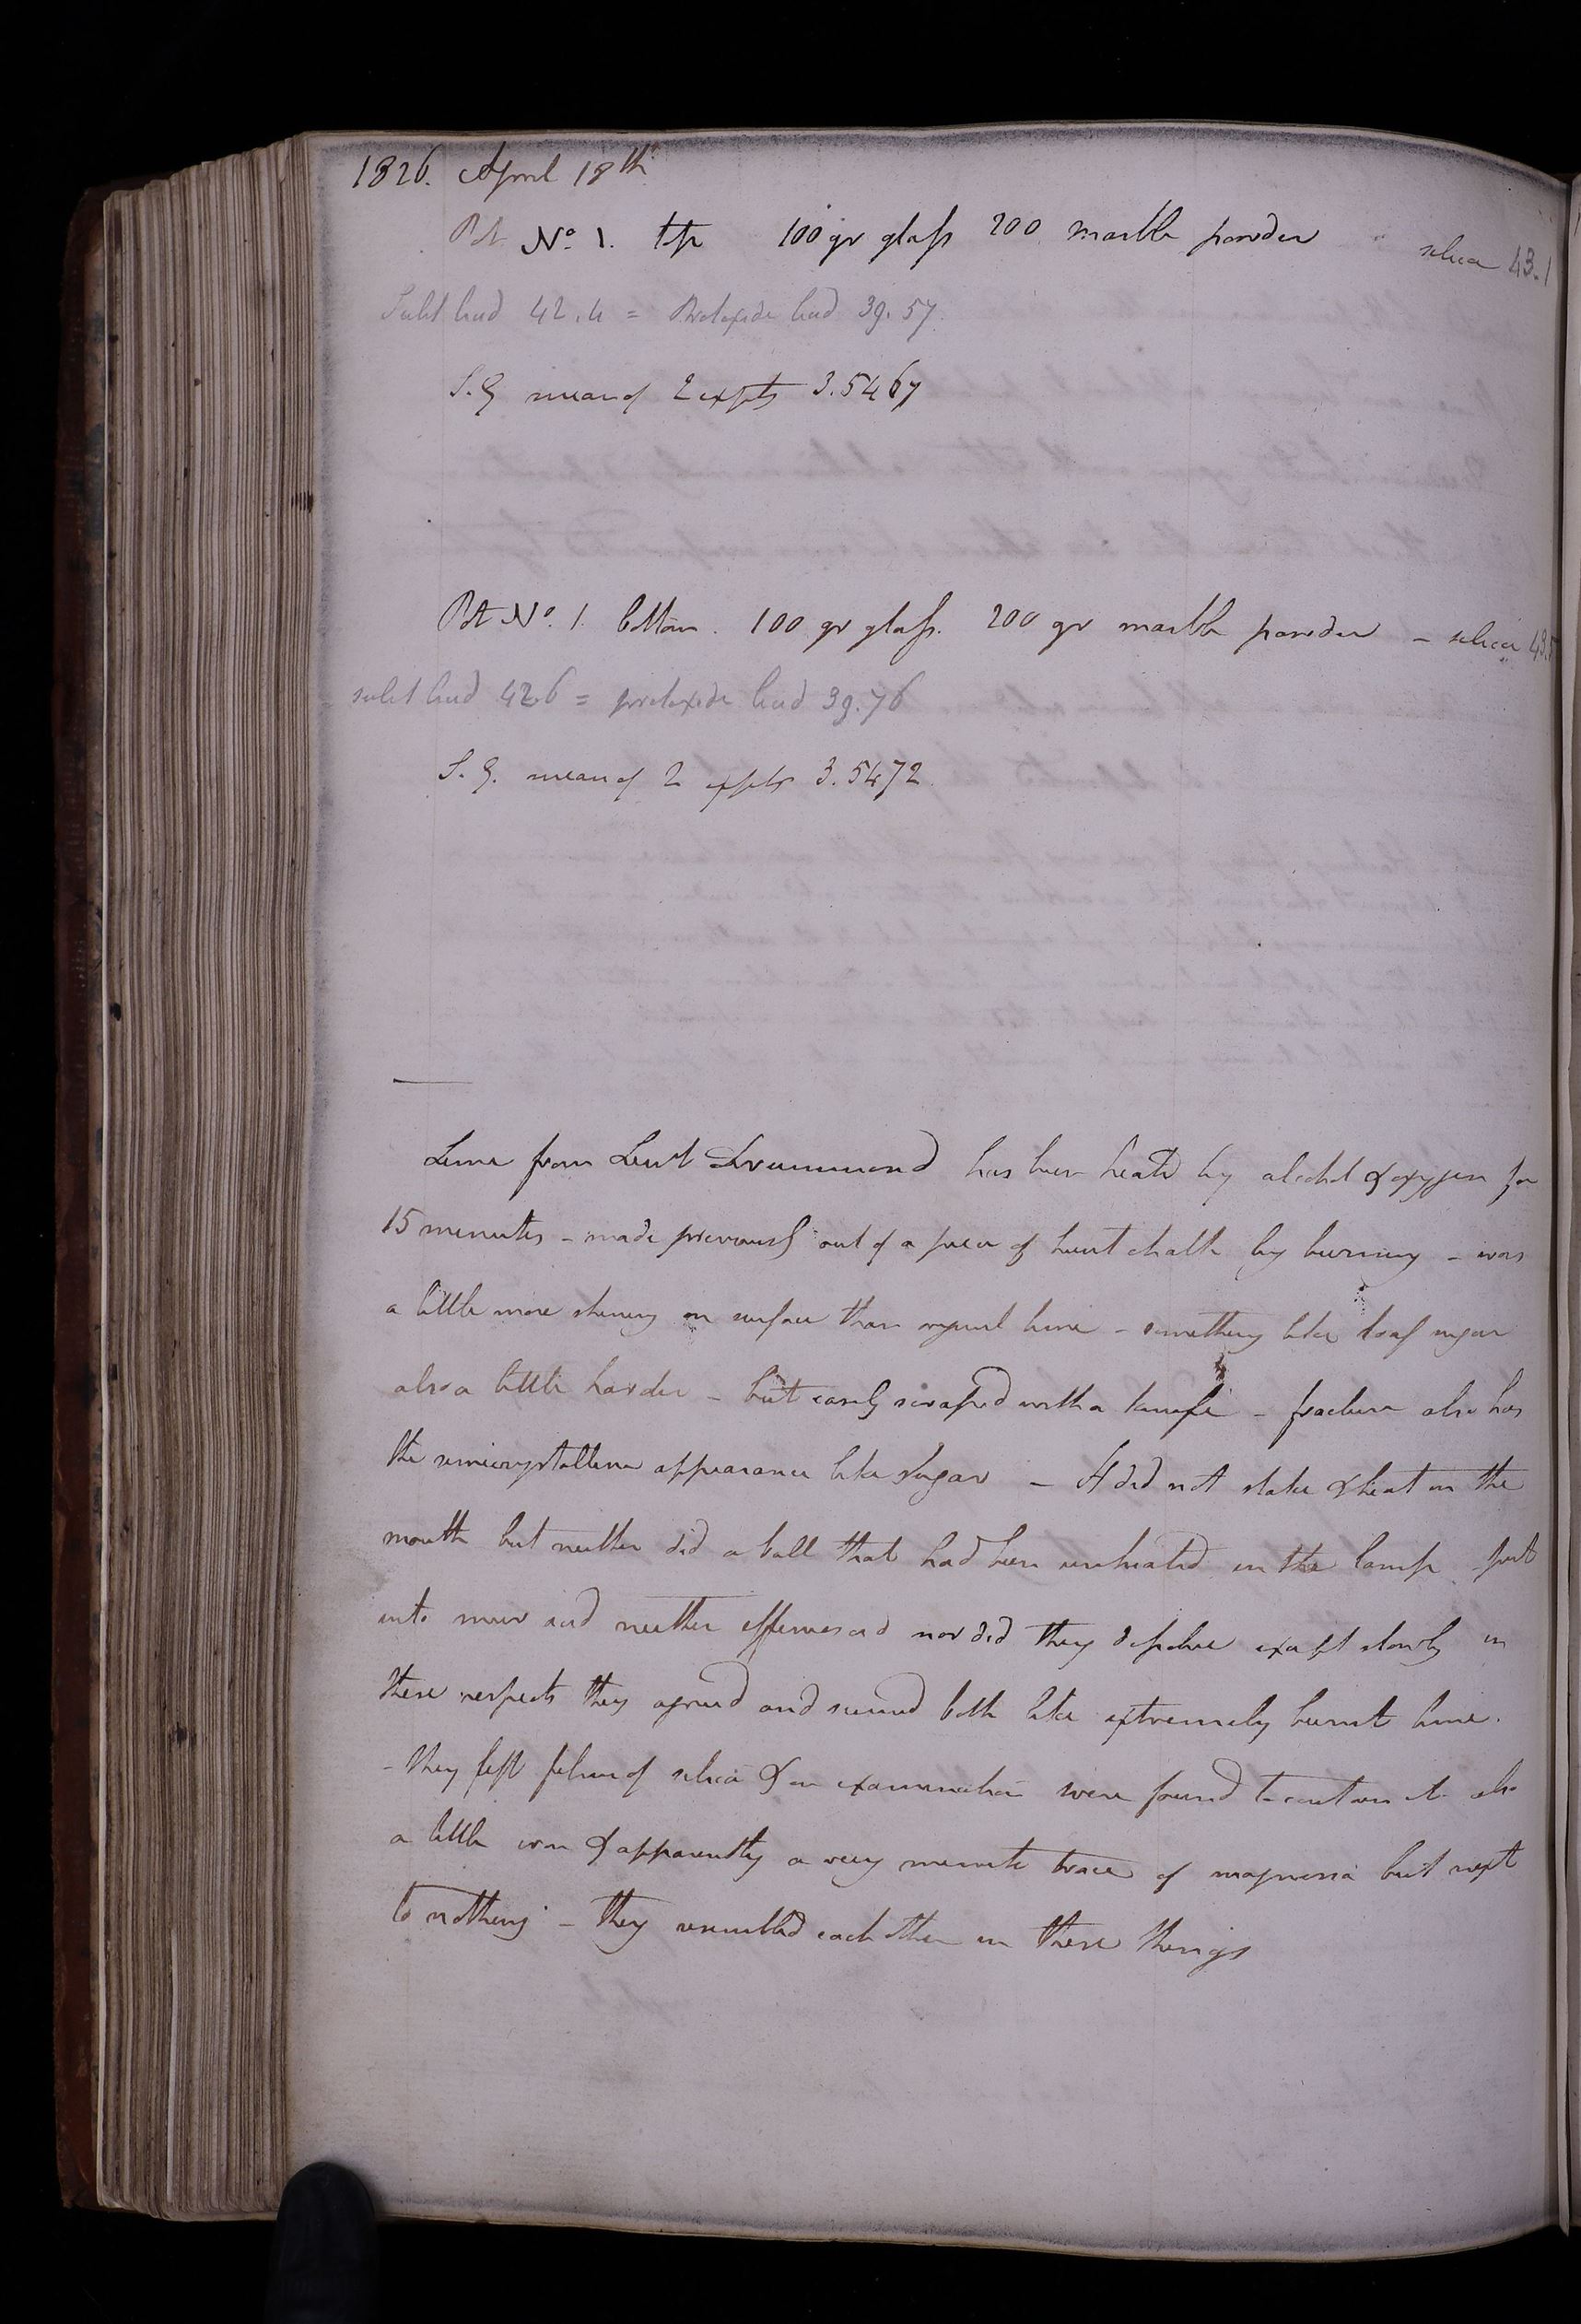 1826. April 18th
Pot No. 1. top 100 gr glass 200 marble powder silica 43.1
Sulst lead 42.4 = Protoxide lead 39.57.
S.G mean of 2 expts 3.5467
Pot No. 1. bottom. 100 gr glass. 200 gr marble powder - silica 43.
sulst lead 42.6 = protoxide lead 39.76
S.G. mean of 2 expts 3.5472
Lime from Lieut Drummond has been heated by alcohol & oxygen for
15 minutes - made previously out of a piece of burnt chalk by burning - was
a little more shining on surface than original lime - something like loaf sugar
also a little harder - but easily scraped with a knife - fracture also has
the semicrystalline appearance like sugar - It did not slake & heat in the
mouth but neither did a ball that had been unheated in the lamp - put
into mur acid neither effervesced nor did they dissolve except slowly in
these respects they agreed and seemed both like extremely burnt lime.
- They left films of silica & on examination were found to contain it also
a little iron & apparently a very minute trace of magnesia but next
to nothing - they resembled each other in these things